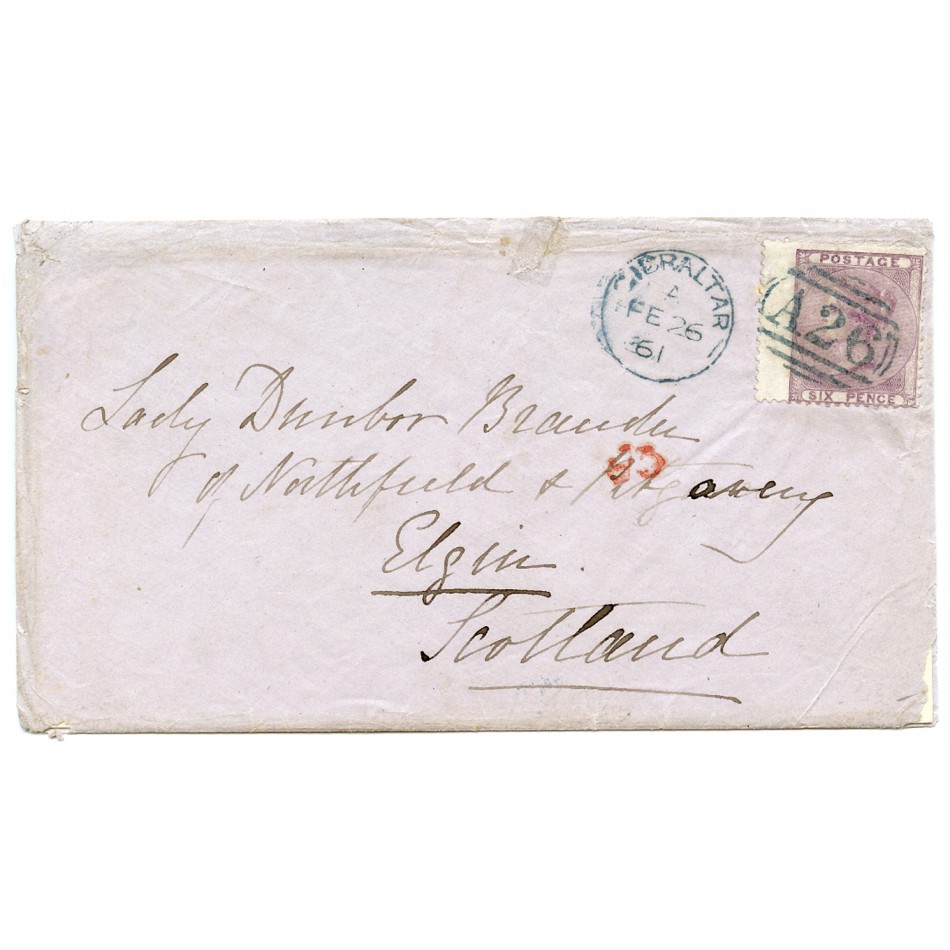 GIBRALTAR
A
FE 26
61
POSTAGE
A26
SIX PENCE
Lady Dunbar Brander
of Northfield & Pitgaveny
Elgin
Scotland